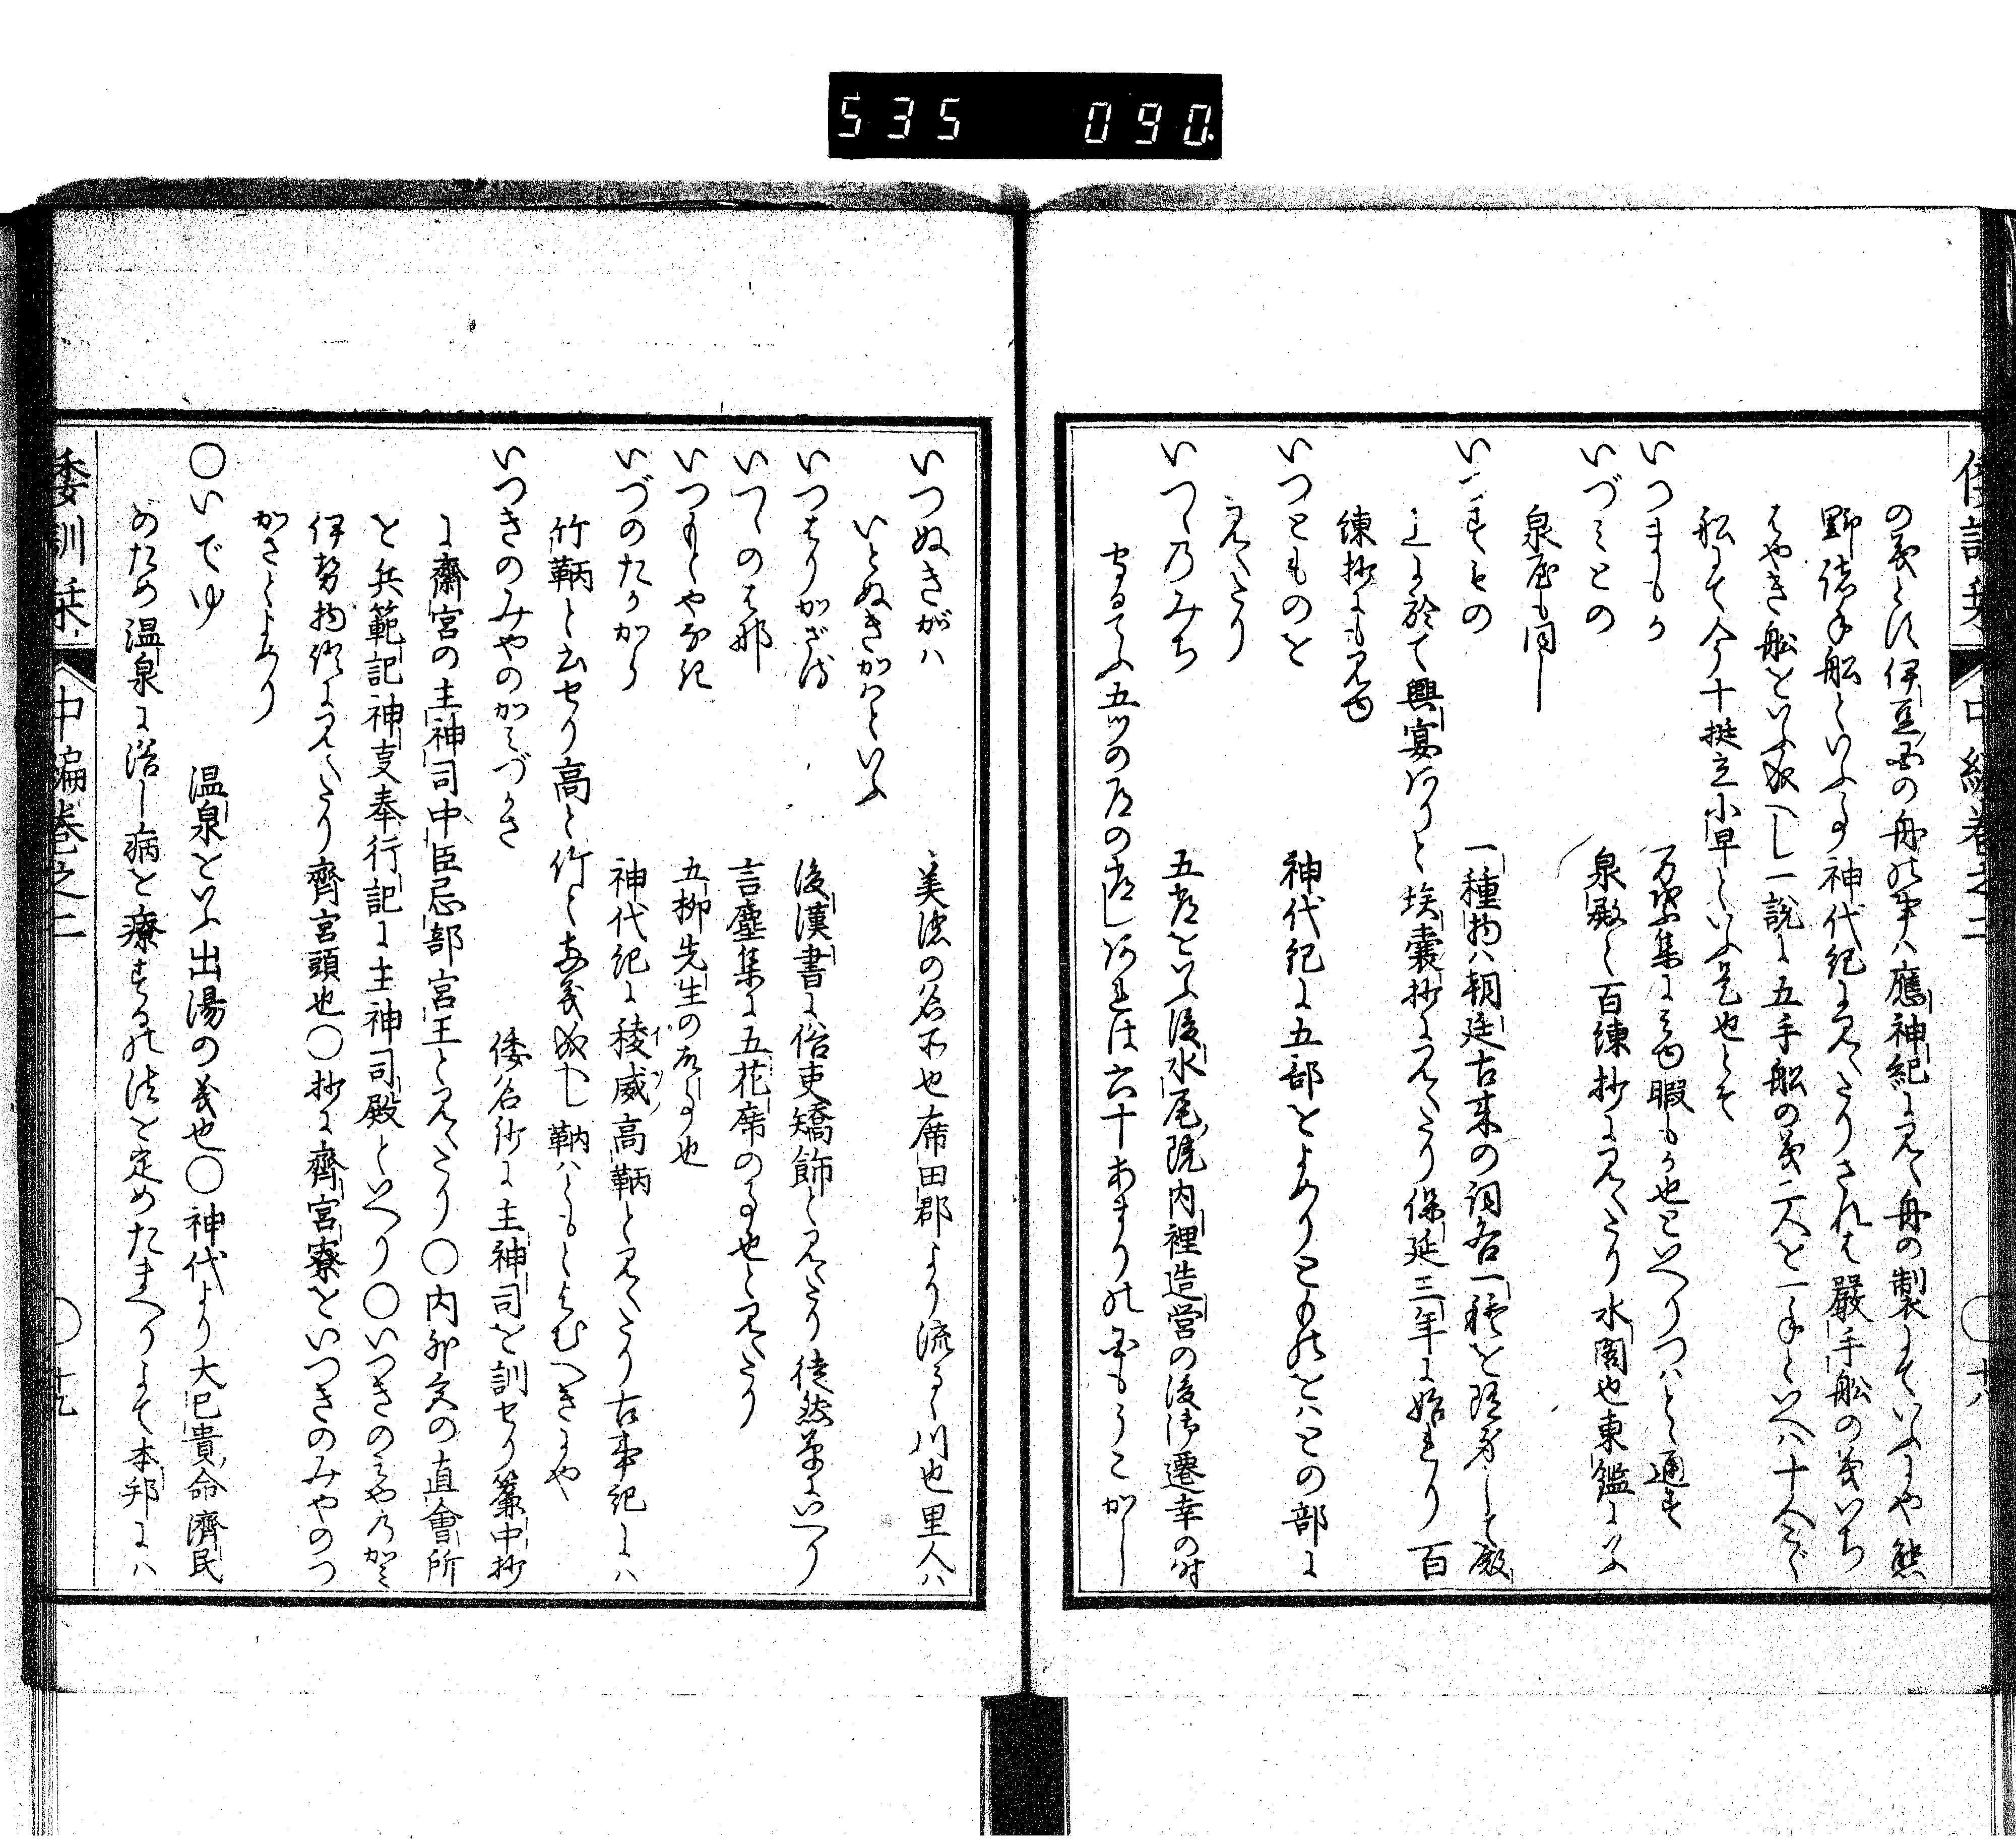 535 090
倭訓栞 中編巻之二 ○十八
の義とす伊豆國の舟の事ハ應神紀に見え舟の製にていふにや熊
野諸手船といふも神代紀に見えたりされは嚴手船の義いち
はやき船をいふ成へし一説に五手船の義二人を一手といへハ十人こぐ
船にて今十挺立小早といふ是也とそ
いつまもか 万葉集に見ゆ暇もか也といへりつハとと通す
いづみとの 泉殿と百練抄に見えたり水閣也東鑑にいふ
泉屋も同し
いつすもの 一種物ハ朝廷古来の詞各一種を随身して殿
上に於て興宴ありと埃嚢抄に見えたり保延三年に始まり百
練抄にも見ゆ
いつとものを 神代紀に五部をよめりとものをハとの部に
見えたり
いつゝのみち 五道をいふ後水尾院内裡造営の後御遷幸の時
守るてふ五ツの道の道しあれは六十あまりの国もうこかし
いつぬきがハ 美濃の名所也席田郡より流るゝ川也里人ハ
いとぬきがはといふ
いつはりかざる 後漢書に俗吏矯飾と見えたり徒然草にいへり
いつゝのはな 言塵集に五花席の事也と見えたり
いつもとやなぎ 五柳先生の故事也
いづのたかがら 神代紀に稜威高鞆と見えたり古事紀にハ
竹鞆と云せり高と竹と音義成へし鞆ハともとよむへきにや
いつきのみやのかんづかさ 倭名鈔に主神司を訓セり簾中抄
に齋宮の主神司中臣忌部宮主と見えたり○内外宮の直會所
を兵範記神事奉行記に主神司殿といへり○いつきのみやのかみ
伊勢物語に見えたり齋宮頭也○抄に齋宮寮をいつきのみやのつ
かさとよめり
○いでゆ 温泉をいふ出湯の義也○神代より大已貴命濟民
のため温泉に浴し病を療するの法を定めたまへりよて本邦にハ
倭訓栞 中編巻之二 ○十九